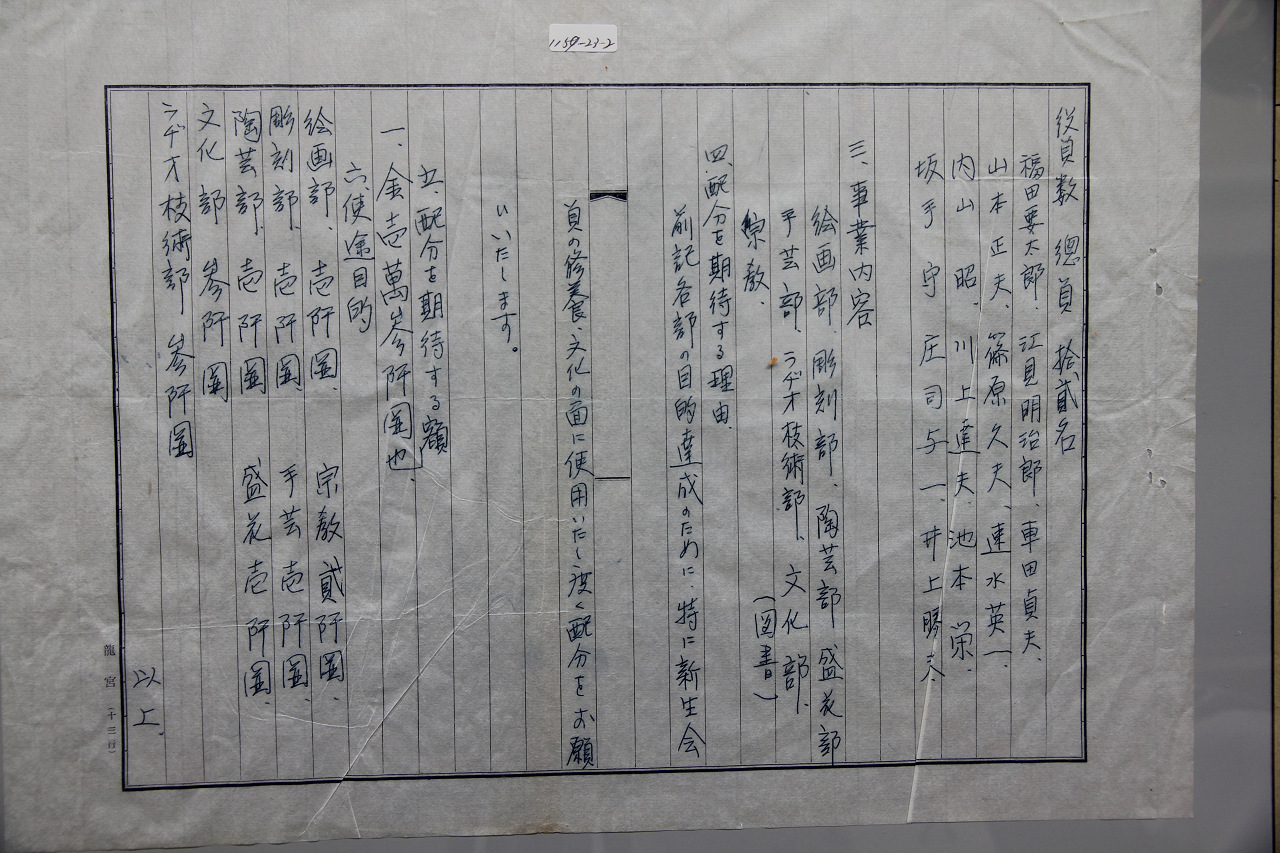 1159-23-2
役員数 總員 拾貳名
福田要太郎、江見明治郎、車田貞夫、
山本正夫、篠原久夫、速水英一、
内山昭、川上達夫、池本栄、
坂手守 庄司与一、井上勝夫、
三、事業内容
絵画部、彫刻部、陶芸部 盛花部
手芸部、ラヂオ技術部、文化部、
(図書)
宗教、
四、配分を期待する理由、
前記各部の目的達成のために、特に新生会
員の修養、文化の面に使用いたし度く配分をお願
いいたします。
五、配分を期待する額
一、金壱萬参阡圓也、
六、使途目的
絵画部、壱阡圓、 宗教 貳阡圓、
彫刻部、壱阡圓、 手芸壱阡圓、
陶芸部、壱阡圓、 盛花壱阡圓、
文化部 参阡圓
ラヂオ技術部 参阡圓
以上、
龍宮(十三行)